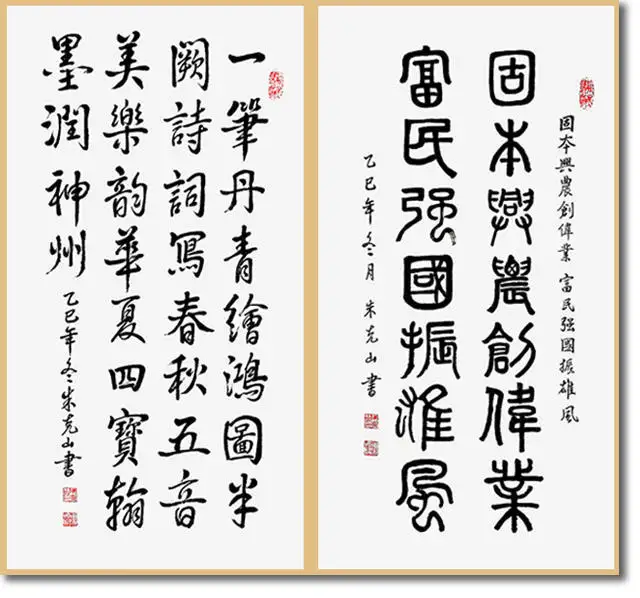 一筆丹青繪鴻圖半
闕詩詞寫春秋五音
美樂韵華夏四寶翰
墨潤神州
乙巳年冬朱克山書
固本興農創偉業 富民强國振雄風
固本興農創偉業
富民强國振雄風
乙巳年冬月 朱克山書